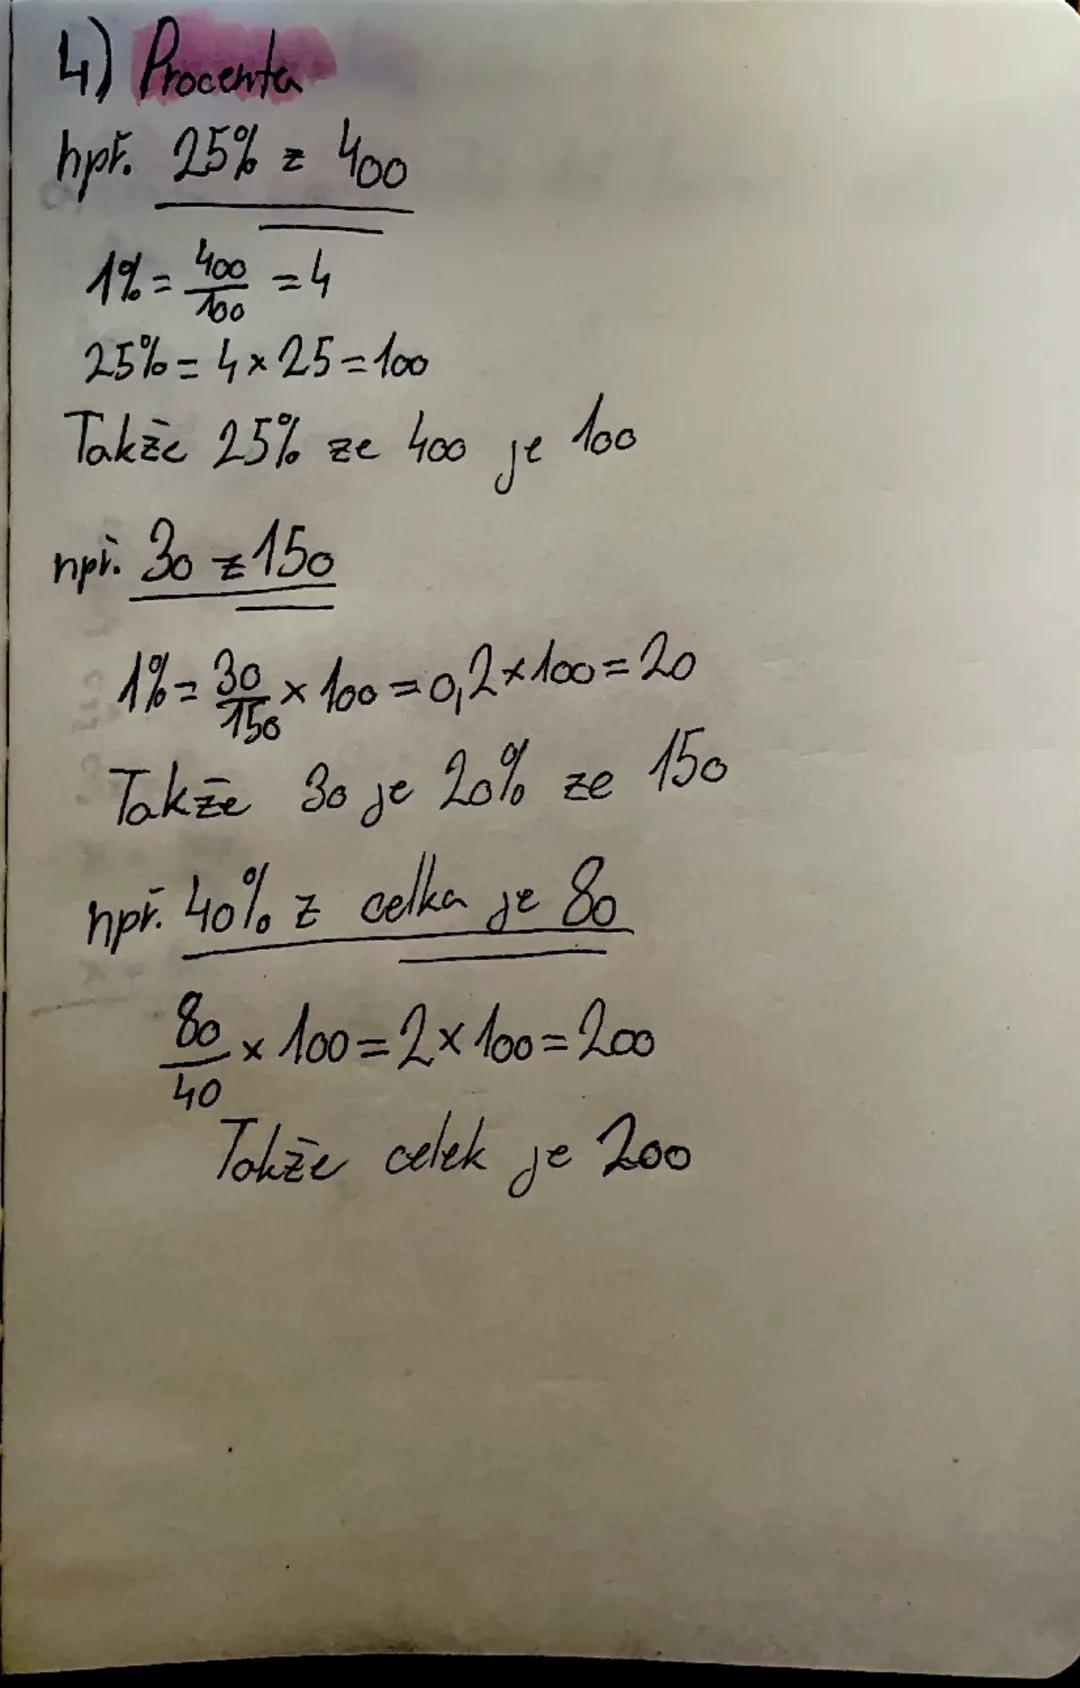 4) Procenta
npř. 25% z 400
1% = 400/100 = 4
25% = 4 × 25 = 100
Takže 25% ze 400 je 100
npř. 30 z 150
1% = 30/150 × 100 = 0,2 × 100 = 20
Takže 30 je 20% ze 150
npř. 40% z celka je 80
80/40 × 100 = 2 × 100 = 200
Takže celek je 200